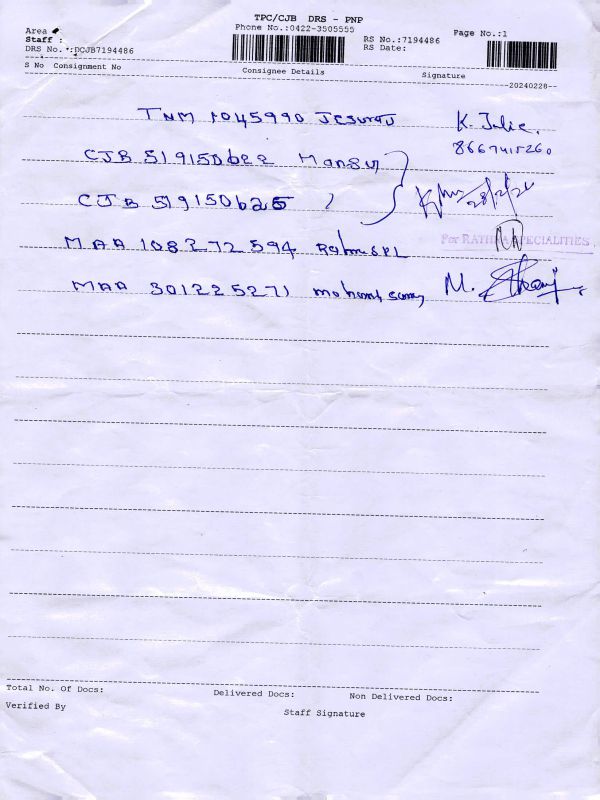 TPC/CJB DRS - PNP
Area :
Phone No.:0422-3505555
Staff :
RS No.:7194486
Page No.:1
DRS No. :DCJB7194486
RS Date:
S No Consignment No
Consignee Details
Signature
20240228
TNM 1045990 Jesuraj K. Julie.
CJB 519150622 Mansuy 8667415260
CJB 519150625 28/2/24
MAA 108272594
For RATHNA SPECIALITIES
MAA 301225271 M.
Total No. Of Docs:
Delivered Docs:
Non Delivered Docs:
Verified By
Staff Signature